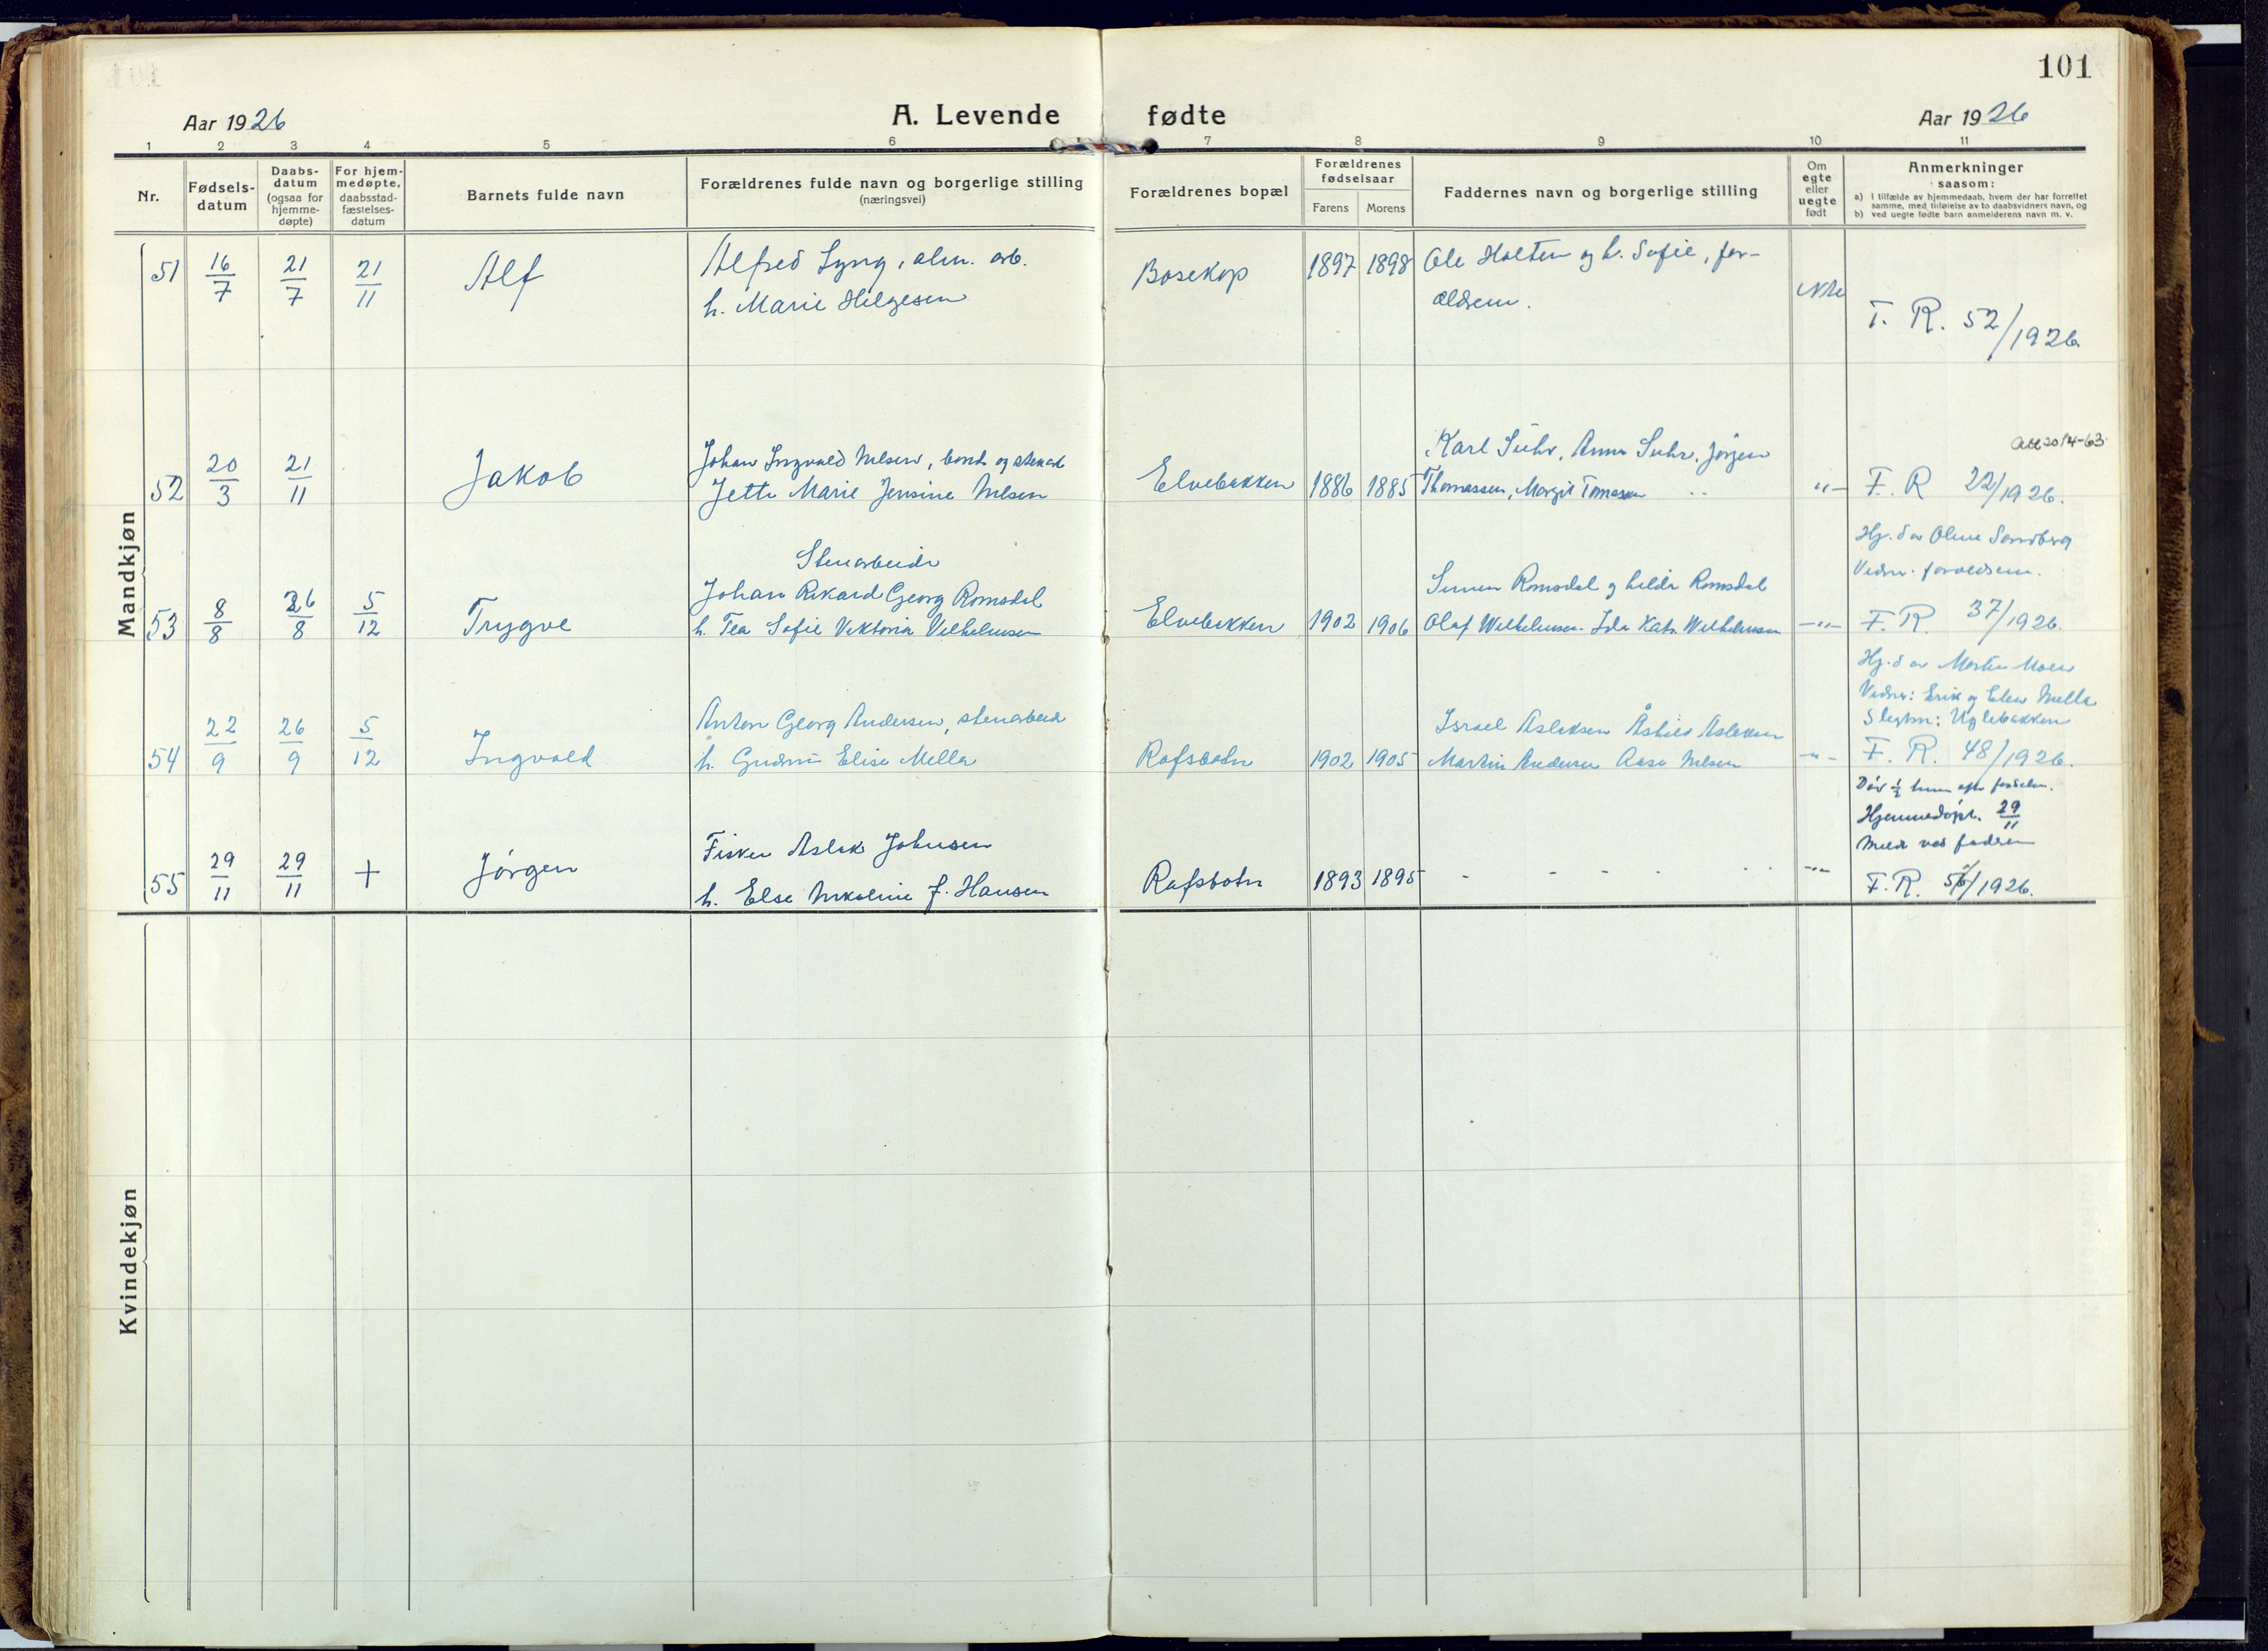 101
Aar 1926
A. Levende fødte
Aar 1926
1 2 3 4 5 6 7 8 9 10 11
Nr.
Fødsels-
datum
Daabs-
datum
(ogsaa for
hjemme-
døpte)
For hjem-
medøpte,
daabsstad-
fæstelses-
datum
Barnets fulde navn
Forældrenes fulde navn og borgerlige stilling
(næringsvei)
Forældrenes bopæl
Forældrenes
fødselsaar
Farens Morens
Faddernes navn og borgerlige stilling
Om
egte
eller
uegte
født
Anmerkninger
saasom:
a) I tilfælde av hjemmedaab, hvem der har forrettet
samme, med tilføielse av to daabsvidners navn, og
b) ved uegte fødte barn anmelderens navn m. v.
Mandkjøn
51 16/7 21/7 21/11 Alf
Alfred Lyng, alm. arb.
h. Marie Helgesen
Bosekop 1897 1898
Ole Holten og h. Sofie, for-
ældrene.
T. R. 52/1926.
52 20/3 21/11 Jakob
Johan Ingvald Nelsen, bonde og stenarb
Jette Marie Jensine Nelsen
Elvebakken 1886 1885
Karl Suhr, Anna Suhr, Jørgen
Thomassen, Margit Tomassen
20/4-63.
" F. R 22/1926.
53 8/8 26/8 5/12 Trygve
Stenarbeider
Johan Rikard Georg Romsdal
h. Tea Sofie Viktoria Vilhelmsen
Elvebakken 1902 1906
Simen Romsdal og hilda Romsdal
Olaf Wilhelmsen. Ida Katr. Wilhelmsen
-"-
Hj. d av Oline Sandberg
Vidner: forældrene.
F. R. 37/1926.
54 22/9 26/9 5/12 Ingvald
Anton Georg Andersen, stenarbeid
h. Gudrun Elise Mella
Rafsbotn 1902 1905
Israel Aslaksen Åshild Aslaksen
Martin Andersen Aase Nelsen
-"-
Hj. d av Martin Moen
Vidner: Erik og Elen Mella
Uglebakken
F. R. 48/1926.
55 29/11 29/11 + Jørgen
Fisker Aslak Johnsen
h. Else Nikoline f. Hansen
Rafsbotn 1893 1895
- - - - -
-"-
Død ½ time efter fødselen.
Hjemmedøpt. 29/11
Meldt ved faderen
F. R. 56/1926.
Kvindekjøn